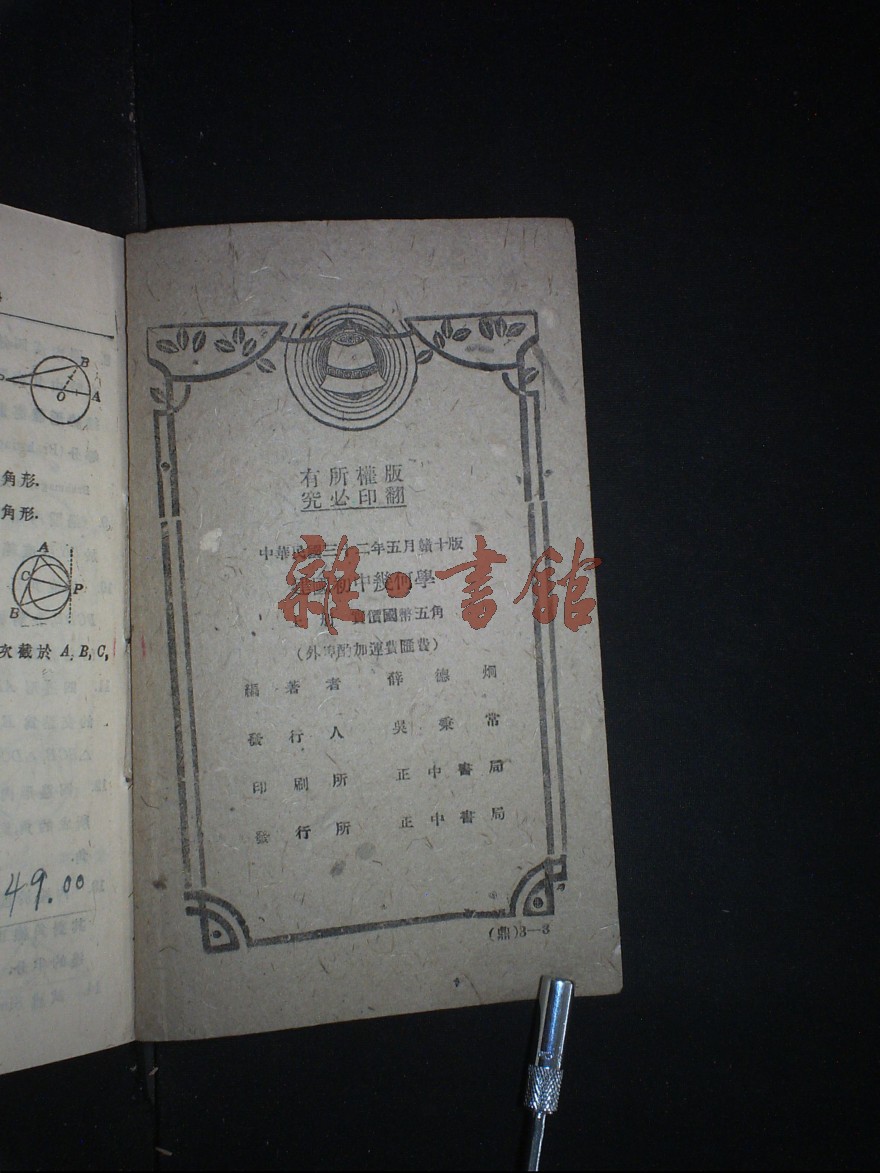 B
O
A
角形.
角形.
A
O
P
B
次截於 A, B, C,
49.00
版權所有
翻印必究
中華民國三十二年五月贛十版
初中幾何學
冊 實價國幣五角
(外埠酌加運費匯費)
編著者 薛德炯
發行人 吳秉常
印刷所 正中書局
發行所 正中書局
(鼎)3—3
雜·書館